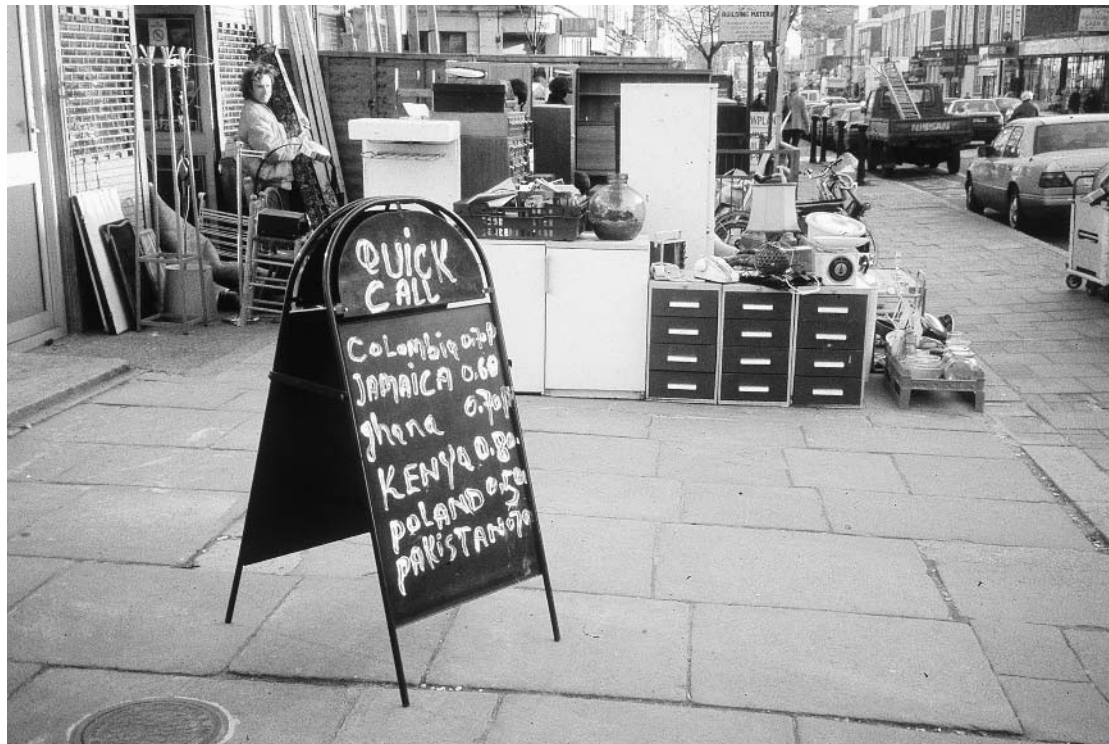 QUICK
CALL
COLOMBIA 0.70P
JAMAICA 0.60
ghana 0.70P
KENYA 0.80.
POLAND 0.50
PAKISTAN 070
BUILDING MATERI
NISSAN